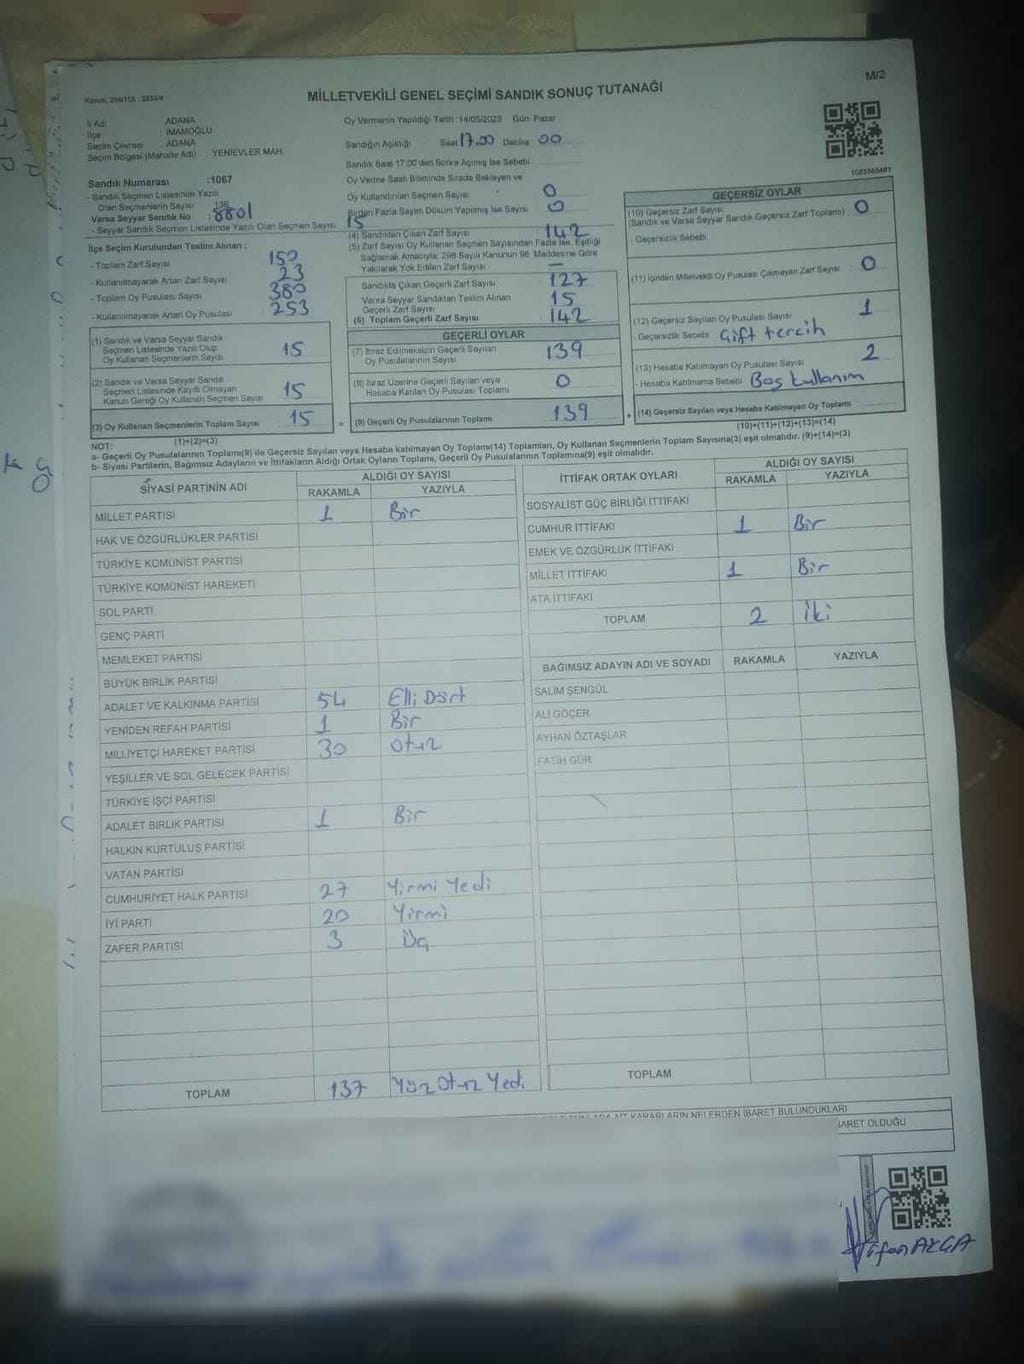 M/2
Kanun, 298/105 - 3835/4
MİLLETVEKİLİ GENEL SEÇİMİ SANDIK SONUÇ TUTANAĞI
İl Adı : ADANA
İlçe : İMAMOĞLU
Seçim Çevresi : ADANA
Seçim Bölgesi (Mahalle Adı) : YENİEVLER MAH.
Sandık Numarası : 1067
- Sandık Seçmen Listesinde Yazılı
Olan Seçmenlerin Sayısı : 136
Varsa Seyyar Sandık No : 8801
- Seyyar Sandık Seçmen Listesinde Yazılı Olan Seçmen Sayısı : 15
İlçe Seçim Kurulundan Teslim Alınan ;
- Toplam Zarf Sayısı 150
- Kullanılmayarak Artan Zarf Sayısı 23
- Toplam Oy Pusulası Sayısı 380
- Kullanılmayarak Artan Oy Pusulası 253
(1) Sandık ve Varsa Seyyar Sandık
Seçmen Listesinde Yazılı Olup
Oy Kullanan Seçmenlerin Sayısı 15
(2) Sandık ve Varsa Seyyar Sandık
Seçmen Listesinde Kayıtlı Olmayan
Kanun Gereği Oy Kullanan Seçmen Sayısı 15
(3) Oy Kullanan Seçmenlerin Toplam Sayısı 15
(1)+(2)=(3)
Oy Vermenin Yapıldığı Tarih : 14/05/2023 Gün: Pazar
Sandığın Açıldığı Saat 17.00 Dakika 00
Sandık Saat 17:00'den Sonra Açılmış İse Sebebi
Oy Verme Saati Bitiminde Sırada Bekleyen ve
Oy Kullandırılan Seçmen Sayısı 0
Birden Fazla Sayım Döküm Yapılmış İse Sayısı 0
(4) Sandıktan Çıkan Zarf Sayısı 142
(5) Zarf Sayısı Oy Kullanan Seçmen Sayısından Fazla İse, Eşitliği
Sağlamak Amacıyla; 298 Sayılı Kanunun 98. Maddesine Göre
Yakılarak Yok Edilen Zarf Sayısı —
Sandıkta Çıkan Geçerli Zarf Sayısı 127
Varsa Seyyar Sandıktan Teslim Alınan
Geçerli Zarf Sayısı 15
(6) Toplam Geçerli Zarf Sayısı 142
GEÇERLİ OYLAR
(7) İtiraz Edilmeksizin Geçerli Sayılan
Oy Pusulalarının Sayısı 139
(8) İtiraz Üzerine Geçerli Sayılan veya
Hesaba Katılan Oy Pusulası Toplamı 0
= (9) Geçerli Oy Pusulalarının Toplamı 139 +
1083565481
GEÇERSİZ OYLAR
(10) Geçersiz Zarf Sayısı
(Sandık ve Varsa Seyyar Sandık Geçersiz Zarf Toplamı) 0
- Geçersizlik Sebebi
(11) İçinden Milletvekili Oy Pusulası Çıkmayan Zarf Sayısı 0
(12) Geçersiz Sayılan Oy Pusulası Sayısı 1
- Geçersizlik Sebebi Çift tercih
(13) Hesaba Katılmayan Oy Pusulası Sayısı 2
- Hesaba Katılmama Sebebi Boş kullanım
(14) Geçersiz Sayılan veya Hesaba Katılmayan Oy Toplamı
(10)+(11)+(12)+(13)=(14)
NOT:
a- Geçerli Oy Pusulalarının Toplamı(9) ile Geçersiz Sayılan veya Hesaba katılmayan Oy Toplamı(14) Toplamları, Oy Kullanan Seçmenlerin Toplam Sayısına(3) eşit olmalıdır. (9)+(14)=(3)
b- Siyasi Partilerin, Bağımsız Adayların ve İttifakların Aldığı Ortak Oyların Toplamı, Geçerli Oy Pusulalarının Toplamına(9) eşit olmalıdır.
SİYASİ PARTİNİN ADI ALDIĞI OY SAYISI
RAKAMLA YAZIYLA
MİLLET PARTİSİ 1 Bir
HAK VE ÖZGÜRLÜKLER PARTİSİ
TÜRKİYE KOMÜNİST PARTİSİ
TÜRKİYE KOMÜNİST HAREKETİ
SOL PARTİ
GENÇ PARTİ
MEMLEKET PARTİSİ
BÜYÜK BİRLİK PARTİSİ
ADALET VE KALKINMA PARTİSİ 54 Elli Dört
YENİDEN REFAH PARTİSİ 1 Bir
MİLLİYETÇİ HAREKET PARTİSİ 30 Otuz
YEŞİLLER VE SOL GELECEK PARTİSİ
TÜRKİYE İŞÇİ PARTİSİ
ADALET BİRLİK PARTİSİ 1 Bir
HALKIN KURTULUŞ PARTİSİ
VATAN PARTİSİ
CUMHURİYET HALK PARTİSİ 27 Yirmi Yedi
İYİ PARTİ 20 Yirmi
ZAFER PARTİSİ 3 Üç
TOPLAM 137 Yüz Otuz Yedi
İTTİFAK ORTAK OYLARI ALDIĞI OY SAYISI
RAKAMLA YAZIYLA
SOSYALİST GÜÇ BİRLİĞİ İTTİFAKI
CUMHUR İTTİFAKI 1 Bir
EMEK VE ÖZGÜRLÜK İTTİFAKI
MİLLET İTTİFAKI 1 Bir
ATA İTTİFAKI
TOPLAM 2 İki
BAĞIMSIZ ADAYIN ADI VE SOYADI RAKAMLA YAZIYLA
SALİM ŞENGÜL
ALİ GÖÇER
AYHAN ÖZTAŞLAR
FATİH GÜR
TOPLAM
KARARLARIN NELERDEN İBARET BULUNDUKLARI
İBARET OLDUĞU